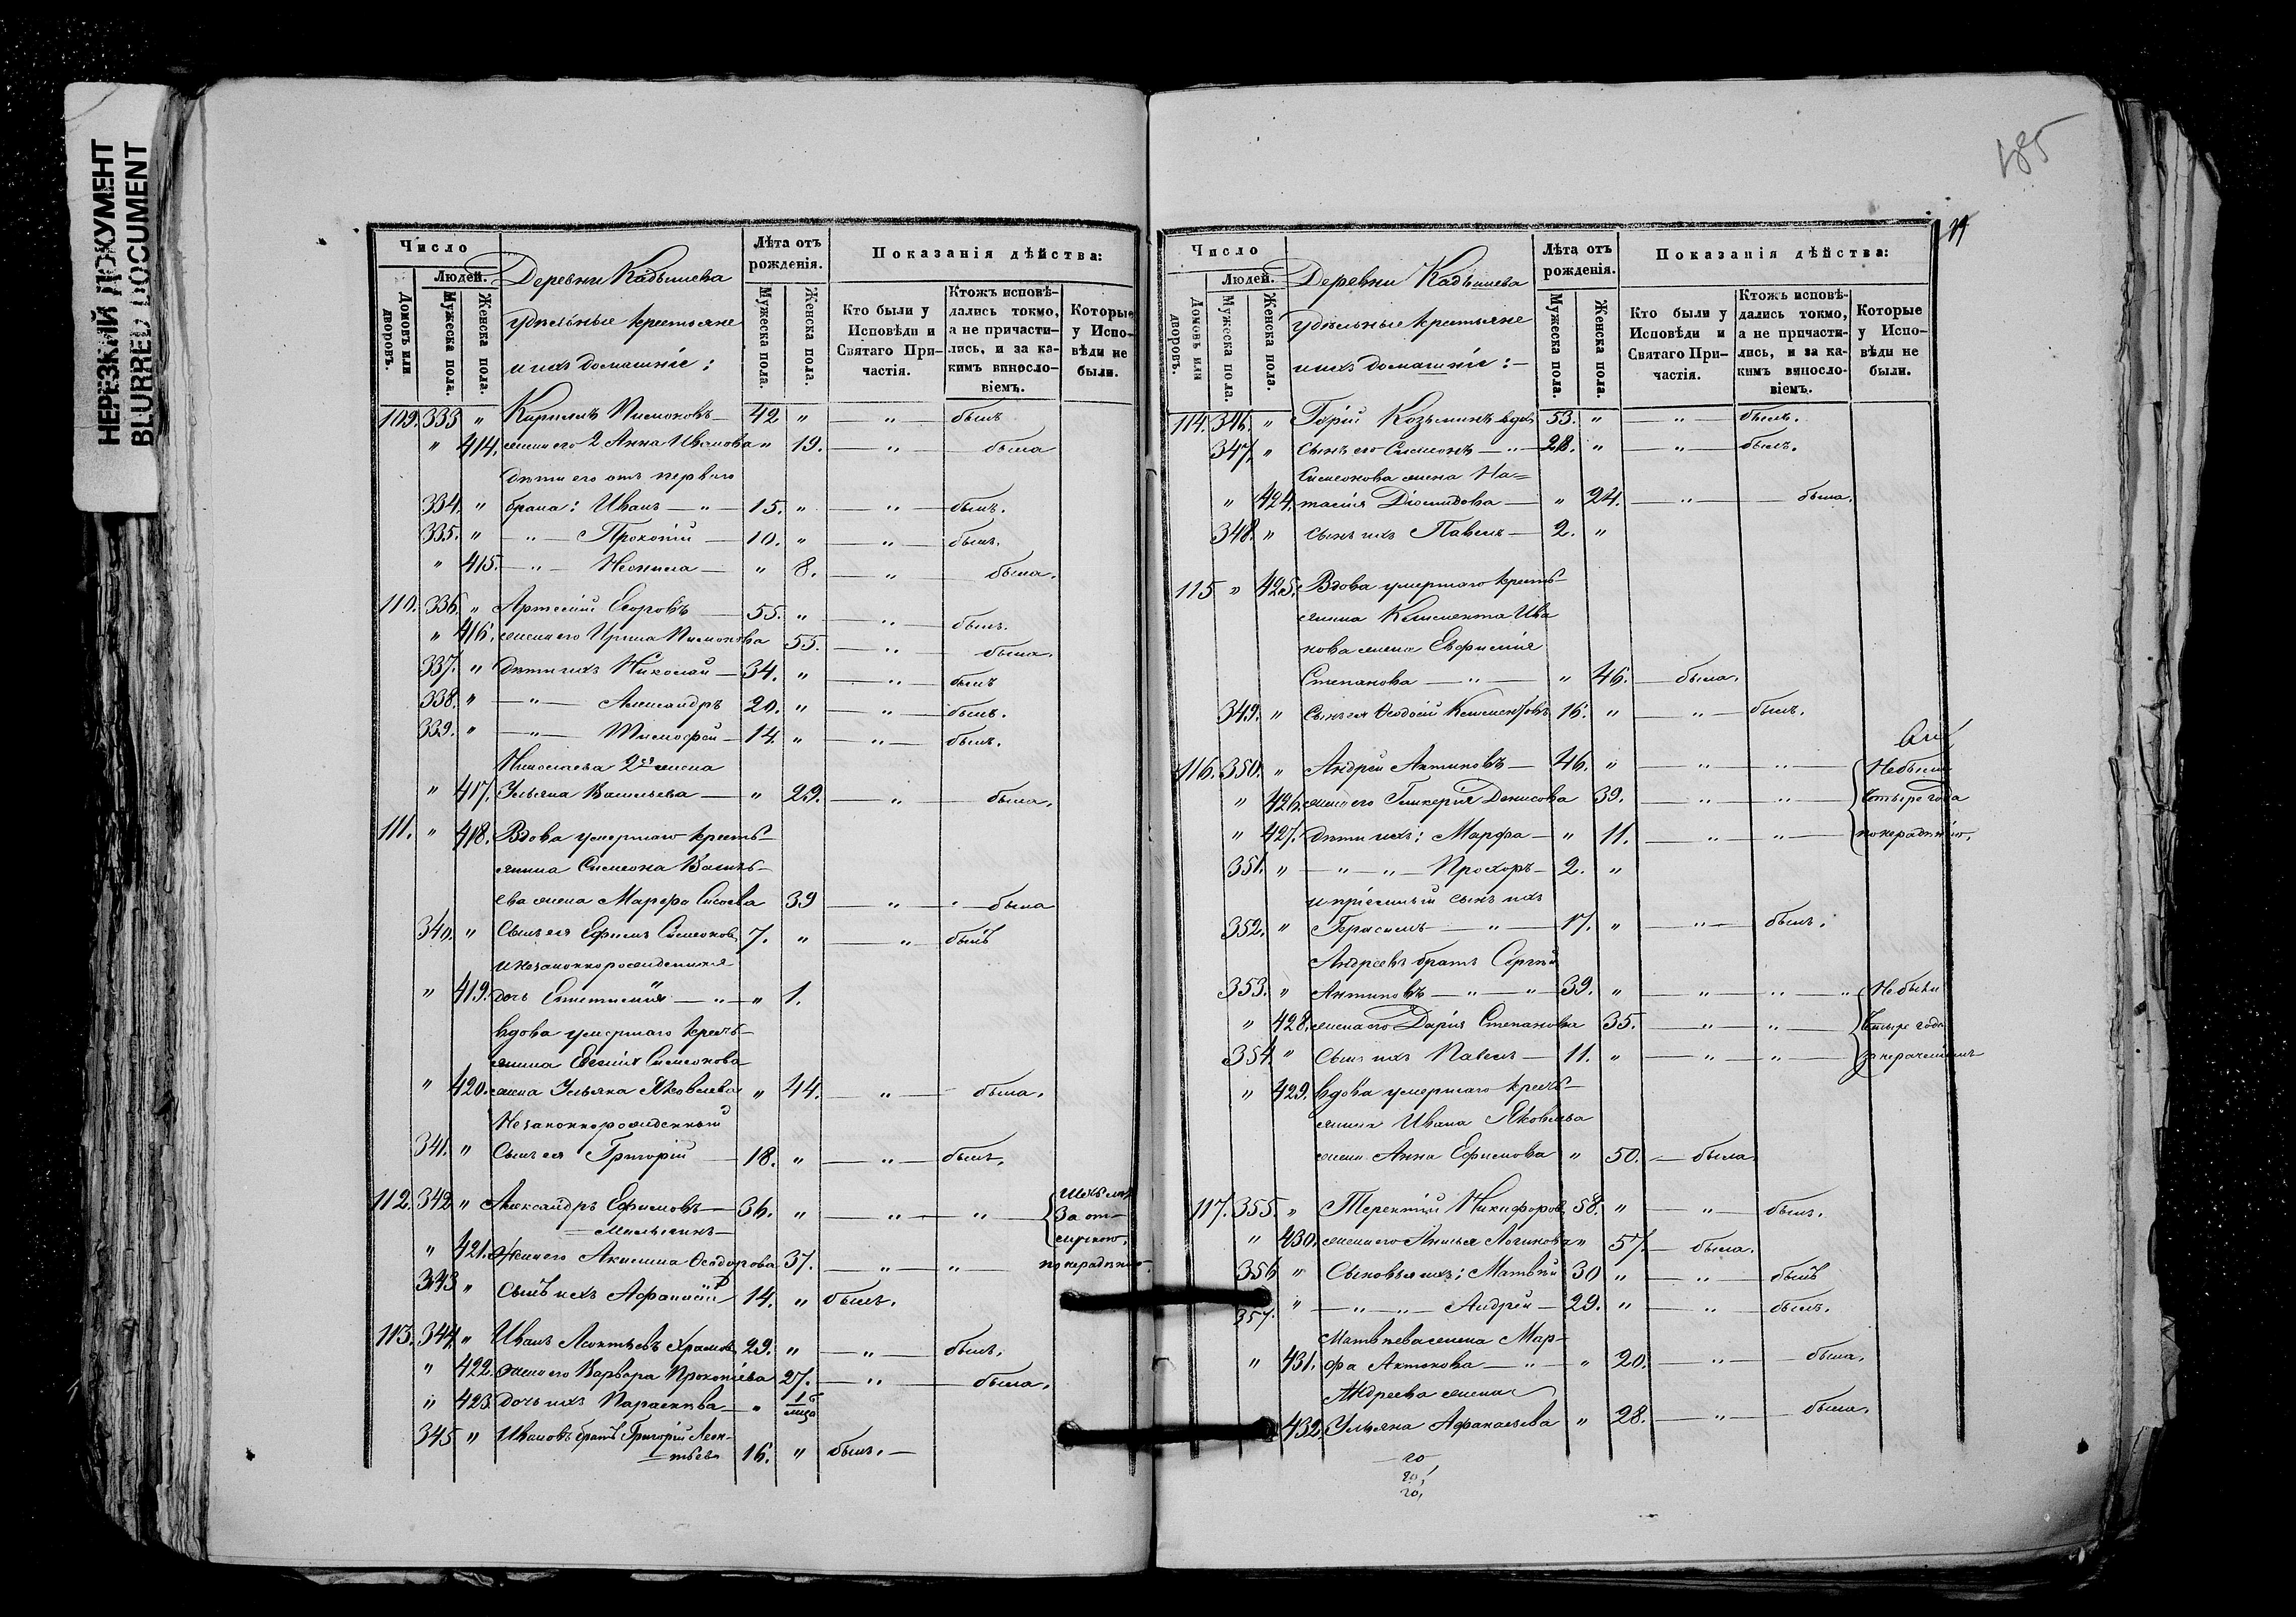 НЕРЕЗКИЙ ДОКУМЕНТ
BLURRED DOCUMENT
Число
Людей.
Домовъ или дворовъ.
Мужеска пола.
Женска пола.
Деревни Кадышева
удѣльные крестьяне
и ихъ домашніе:
Лѣта отъ рожденія.
Мужеска пола.
Женска пола.
Показанія дѣйства:
Кто были у Исповѣди и Святаго Причастія.
Ктожъ исповѣдались токмо, а не причастились, и за какимъ винословіемъ.
Которые у Исповѣди не были.
109. 333 " Пимоновъ 42 " — " — былъ
" 414. жена его 2 Анна Иванова " 19. — " — была
Дѣти его отъ перваго
334. " брака: Иванъ — " — 15. " — " — былъ.
335. " — " — Прокопій — 10. " — " — былъ.
" 415. — " — Неонила — " 8. — " — была.
110. 336. " Артемій Егоровъ — 55. " — " — былъ.
" 416. жена его Ирина Пимонова 55. — " — была.
337. " Дѣти ихъ Николай — 34. " — " — былъ
338. " — " — Александръ 20. " — " — былъ.
339. " — " — Тимофей — 14. " — " — былъ.
Николаева 2я жена
" 417. Ульяна Васильева — " 29. — " — была.
111. " 418. Вдова умершаго кресть-
янина Симеона Василь-
ева жена Марфа Сысоева 39 — " — " — была
340. " Сынъ ея Ефимъ Симеонов 7. " — " былъ
и незаконнорожденная
" 419. дочь — " — " 1.
Вдова умершаго кресть-
янина Симеонова
" 420. жена Ульяна Яковлева " 44. — " — была.
Незаконнорожденный
341. " Сынъ ея Григорій — 18. " — " — былъ.
112. 342 " Александръ Ефимовъ — 36. " — " — " —
За от-
лучкою.
" 421. Жена его Акилина Ѳеодорова 37. — " — " — по нерадѣнію.
343 " Сынъ ихъ Афанасій 14. " былъ.
113. 344. " Иванъ Леонтьевъ Храмов 29. " — " — былъ.
" 422. Жена его Варвара Прокопіева 27. — " — была.
" 423. дочь ихъ Параскева — "
345 " Ивановъ братъ Григорій Леон-
тьевъ 16. " былъ. —
185
Число
Людей.
Домовъ или дворовъ.
Мужеска пола.
Женска пола.
Деревни Кадышева
удѣльные крестьяне
и ихъ домашніе: —
Лѣта отъ рожденія.
Мужеска пола.
Женска пола.
Показанія дѣйства:
Кто были у Исповѣди и Святаго Причастія.
Ктожъ исповѣдались токмо, а не причастились, и за какимъ винословіемъ.
Которые у Исповѣди не были.
114. 346. " Козьминъ вдов 53. " — " — былъ.
347. " Сынъ его Симеонъ — " — 28. " — " — былъ.
Симеонова жена На-
" 424. талія Діомидова — " 24. — " — была.
348. " сынъ ихъ Павелъ — 2. "
115 " 425. Вдова умершаго кресть-
янина Климента Ива
нова жена Евфимія
Степанова — " — " 46. — была.
349. " Сынъ ея Ѳеодосій Климентовъ 16. " — " — былъ.
116. 350. " Андрей Антиповъ — 46. " — " — " — Не были
" 426. жена его Гликерія Денисова 39. — " — " — Четыре года
" 427. дѣти ихъ: Марфа — " 11. — " — " — по нерадѣнію.
351. " — " — " — Прохоръ — 2. "
и пріемный сынъ ихъ
352. " Герасимъ — " — 17. " — " — былъ.
Андреевъ братъ Сергѣй
353. " Антиповъ — " — " — 39. " — " — " — " Не были
" 428. жена его Дарія Степанова 35. — " — " — Четыре года
354. " Сынъ ихъ Павелъ — 11. " — " — " —
" 429. Вдова умершаго кресть-
янина Ивана Яковлева
жена Анна Ефимова " 50. — была.
117. 355. " Терентій Никифоров 58. " — " — былъ.
" 430. жена его Логинова " 57. — была.
356 " Сыновья ихъ: Матвѣй 30 " — " — былъ
357. " — " — " — Андрей — 29. " — " — былъ.
Матвѣева жена Мар-
" 431. фа Антонова — " — " 20. — " — была.
Андреева жена
432. Ульяна Афанасьева " 28. — " — была.
20
20,
20,